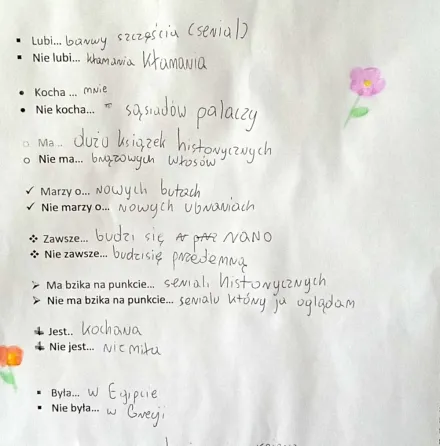 Lubi... barwy szczęścia (serial)
Nie lubi... kłamania kłamania
Kocha... mnie
Nie kocha... sąsiadów palaczy
Ma... dużo książek historycznych
Nie ma... brązowych włosów
Marzy o... nowych butach
Nie marzy o... nowych ubraniach
Zawsze... budzi się rano
Nie zawsze... budzisię przedemną
Ma bzika na punkcie... seriali historycznych
Nie ma bzika na punkcie... serialu który ja oglądam
Jest.. kochana
Nie jest... niemiła
Była... w Egipcie
Nie była... w Grecji